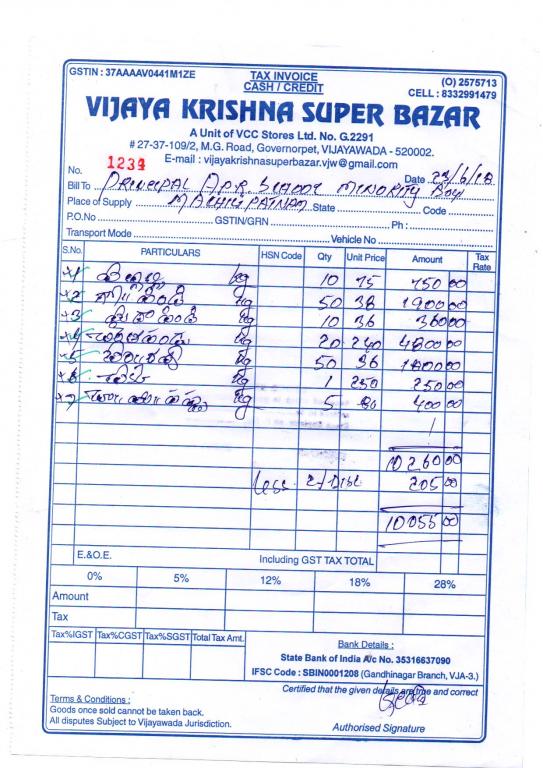 GSTIN : 37AAAAV0441M1ZE
TAX INVOICE
CASH / CREDIT
(O) 2575713
CELL : 8332991479
VIJAYA KRISHNA SUPER BAZAR
A Unit of VCC Stores Ltd. No. G.2291
# 27-37-109/2, M.G. Road, Governorpet, VIJAYAWADA - 520002.
E-mail : vijayakrishnasuperbazar.vjw@gmail.com
No. 1234 Date 23/6/18
Bill To Principal A.P.R. School Minority Boys
Place of Supply MACHILIPATNAM State Code
P.O.No GSTIN/GRN Ph :
Transport Mode Vehicle No
S.No. PARTICULARS HSN Code Qty Unit Price Amount Tax Rate
1 kg 10 75 750 00
2 kg 50 38 1900 00
3 kg 10 36 360 00
4 kg 20 240 4800 00
5 kg 50 36 1800 00
6 kg 1 250 250 00
7 kg 5 80 400 00
10260 00
Less 2% Disc 205 00
10055 00
E.&O.E. Including GST TAX TOTAL
0% 5% 12% 18% 28%
Amount
Tax
Tax%IGST Tax%CGST Tax%SGST Total Tax Amt.
Bank Details :
State Bank of India A/c No. 35316637090
IFSC Code : SBIN0001208 (Gandhinagar Branch, VJA-3.)
Certified that the given details are true and correct
Terms & Conditions :
Goods once sold cannot be taken back.
All disputes Subject to Vijayawada Jurisdiction.
Authorised Signature